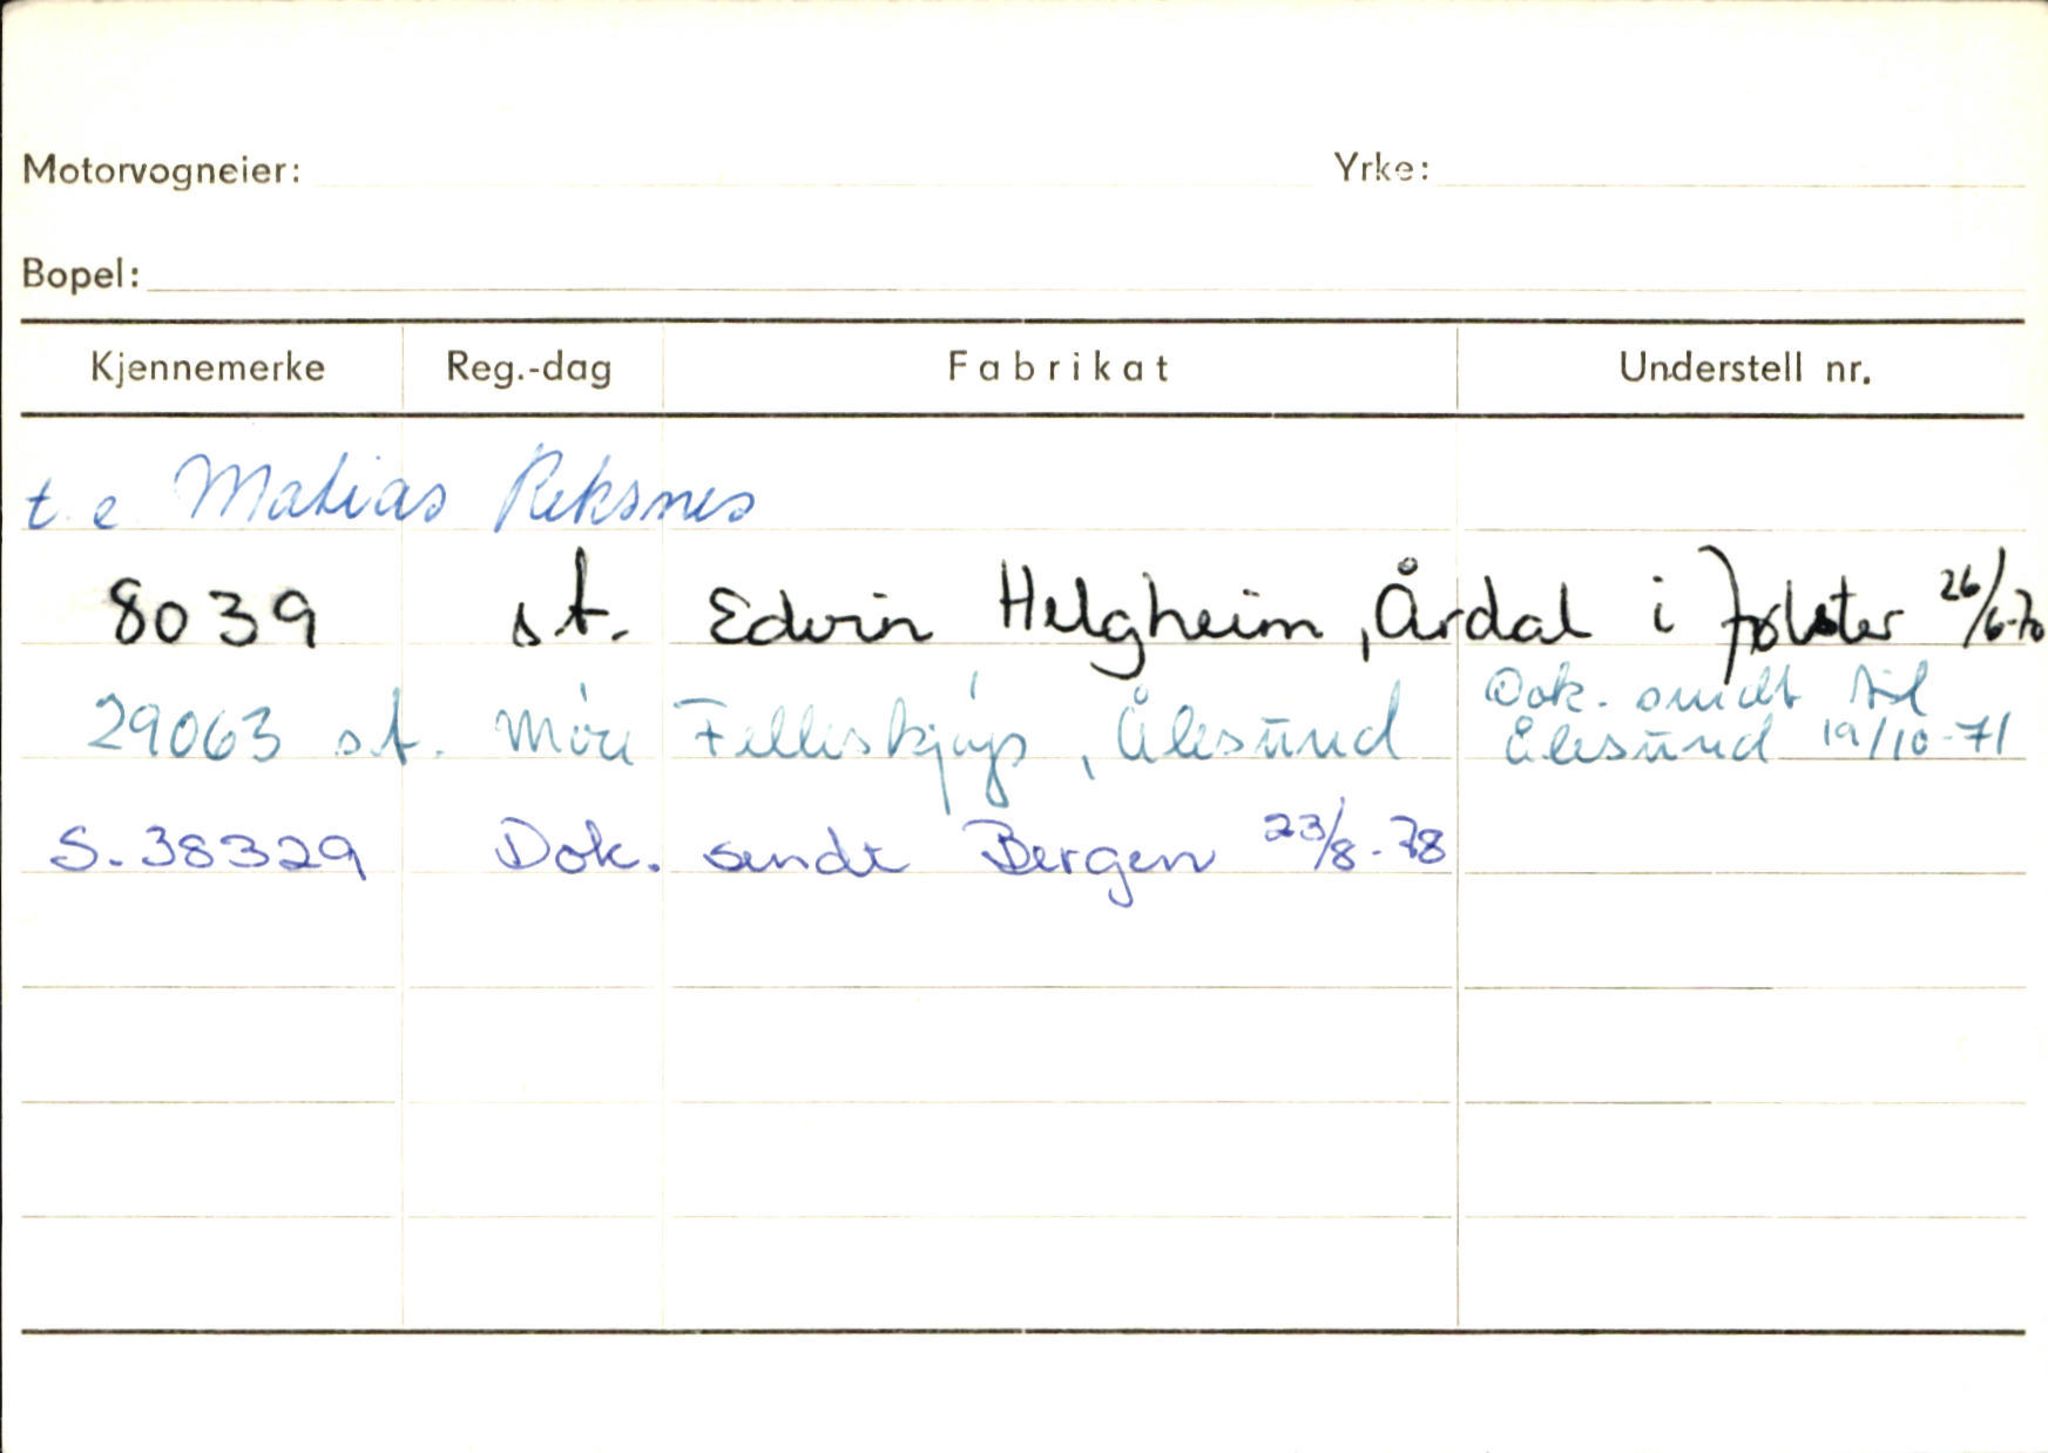 Motorvogneier: Yrke:
Bopel:
Kjennemerke Reg.-dag Fabrikat Understell nr.
t.e. Matias Reksnes
8039 st. Edvin Helgheim, Årdal i Jølster 26/6-70
29063 st. Möre Felleskjöp, Ålesund Dok. sendt til
Ålesund 19/10-71
S. 38329 Dok. sendt Bergen 23/8-78